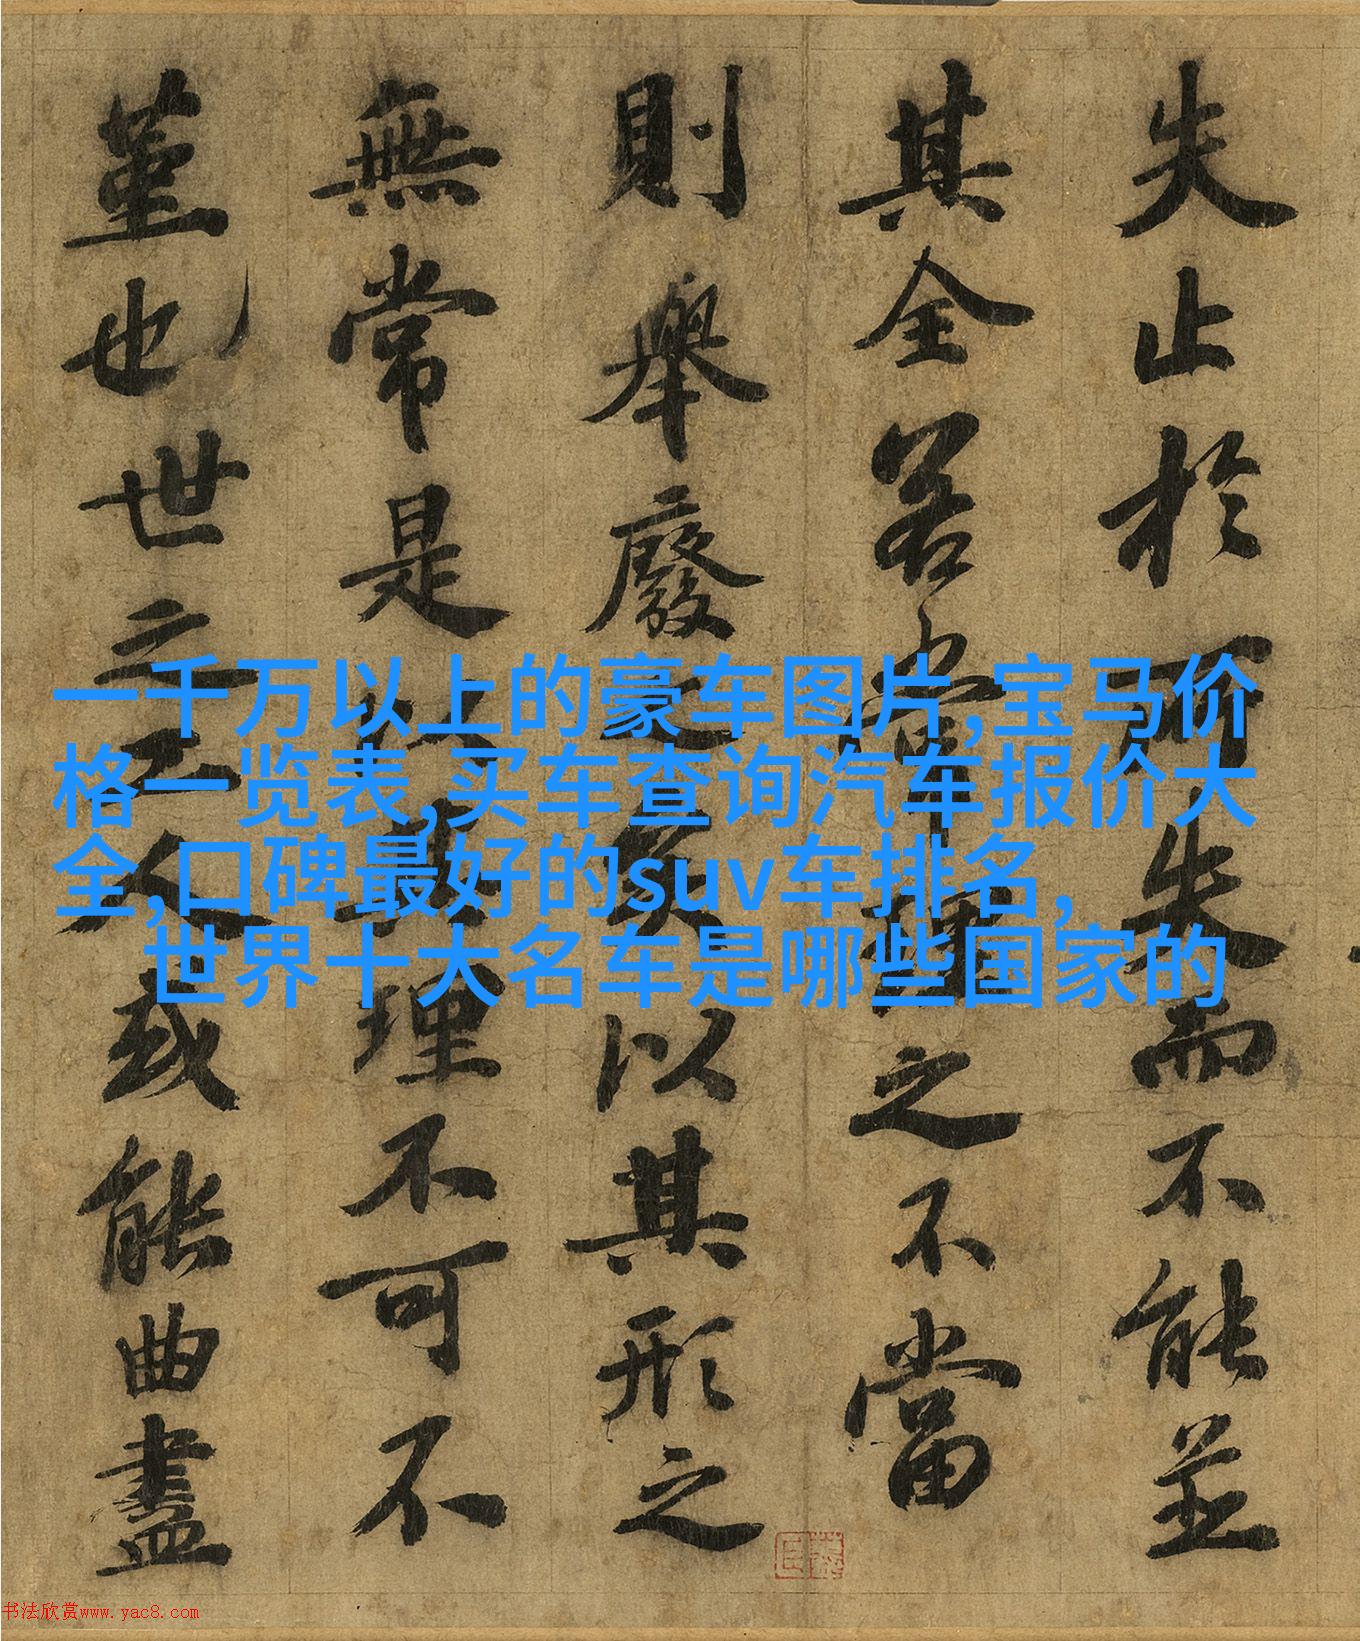 失止於所失而不能並
其全若常理之不當
則舉廢之矣以其形之
無常是以其理不可不
堇也世之工人或能曲盡
一千万以上的豪车图片,宝马价
格一览表,买车查询汽车报价大
全,口碑最好的suv车排名,
世界十大名车是哪些国家的
书法欣赏www.yac8.com